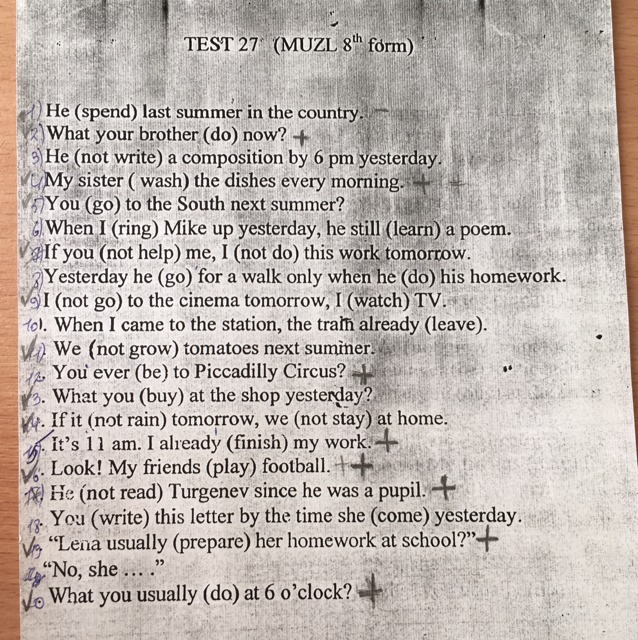 TEST 27 (MUZL 8th form)
1) He (spend) last summer in the country. –
2) What your brother (do) now? +
3) He (not write) a composition by 6 pm yesterday.
4) My sister ( wash) the dishes every morning. + +
5) You (go) to the South next summer?
6) When I (ring) Mike up yesterday, he still (learn) a poem.
7) If you (not help) me, I (not do) this work tomorrow.
8) Yesterday he (go) for a walk only when he (do) his homework.
9) I (not go) to the cinema tomorrow, I (watch) TV.
10). When I came to the station, the train already (leave).
11) We (not grow) tomatoes next summer.
12. You ever (be) to Piccadilly Circus? +
13. What you (buy) at the shop yesterday?
14. If it (not rain) tomorrow, we (not stay) at home.
15. It's 11 am. I already (finish) my work. +
6. Look! My friends (play) football. + +
17) He (not read) Turgenev since he was a pupil. +
18. You (write) this letter by the time she (come) yesterday.
19 “Lena usually (prepare) her homework at school?” +
“No, she … .”
What you usually (do) at 6 o'clock? +